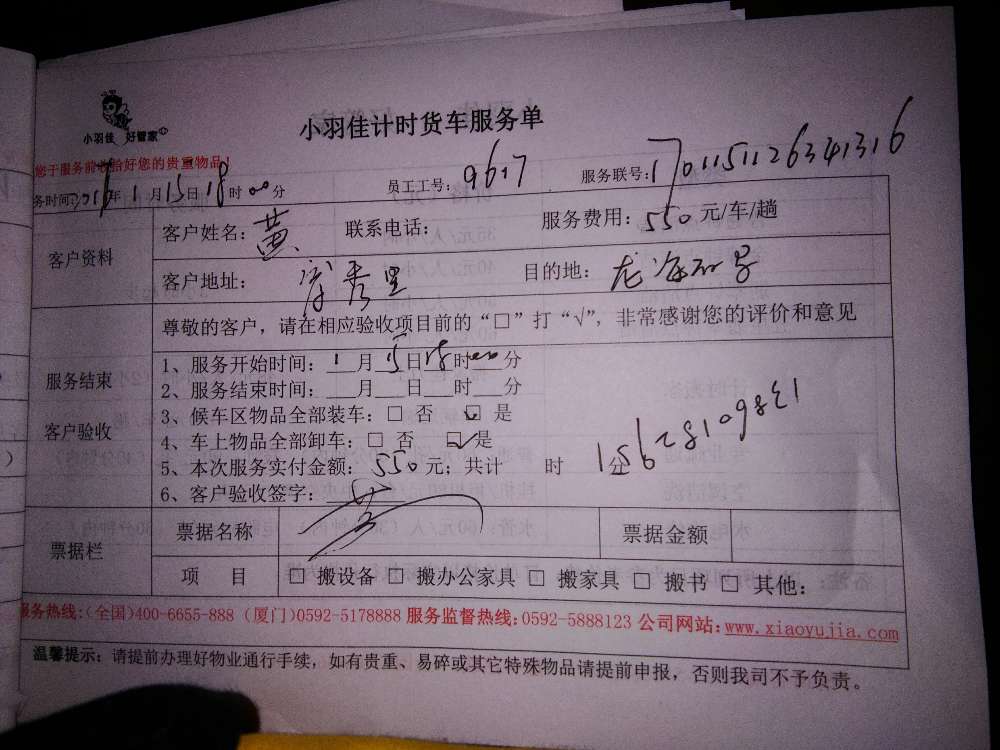 小羽佳 好管家
小羽佳计时货车服务单
您于服务前收拾好您的贵重物品
务时间:2016年1月15日18时00分 员工工号: 9617 服务联号: 1701151126341316
客户资料
客户姓名: 黄 联系电话: 服务费用: 550元/车/趟
客户地址: 秀里 目的地: 龙海
服务结束
客户验收
尊敬的客户，请在相应验收项目前的“□”打“√”，非常感谢您的评价和意见
1、服务开始时间: 1月15日18时00分
2、服务结束时间: 月 日 时 分
3、候车区物品全部装车: □ 否 ☑ 是
4、车上物品全部卸车: □ 否 ☑ 是
5、本次服务实付金额: 550元; 共计 时 分
6、客户验收签字:
票据栏
票据名称 票据金额
项 目 □ 搬设备 □ 搬办公家具 □ 搬家具 □ 搬书 □ 其他:
服务热线:(全国)400-6655-888 (厦门)0592-5178888 服务监督热线:0592-5888123 公司网站:www.xiaoyujia.com
温馨提示: 请提前办理好物业通行手续，如有贵重、易碎或其它特殊物品请提前申报，否则我司不予负责。